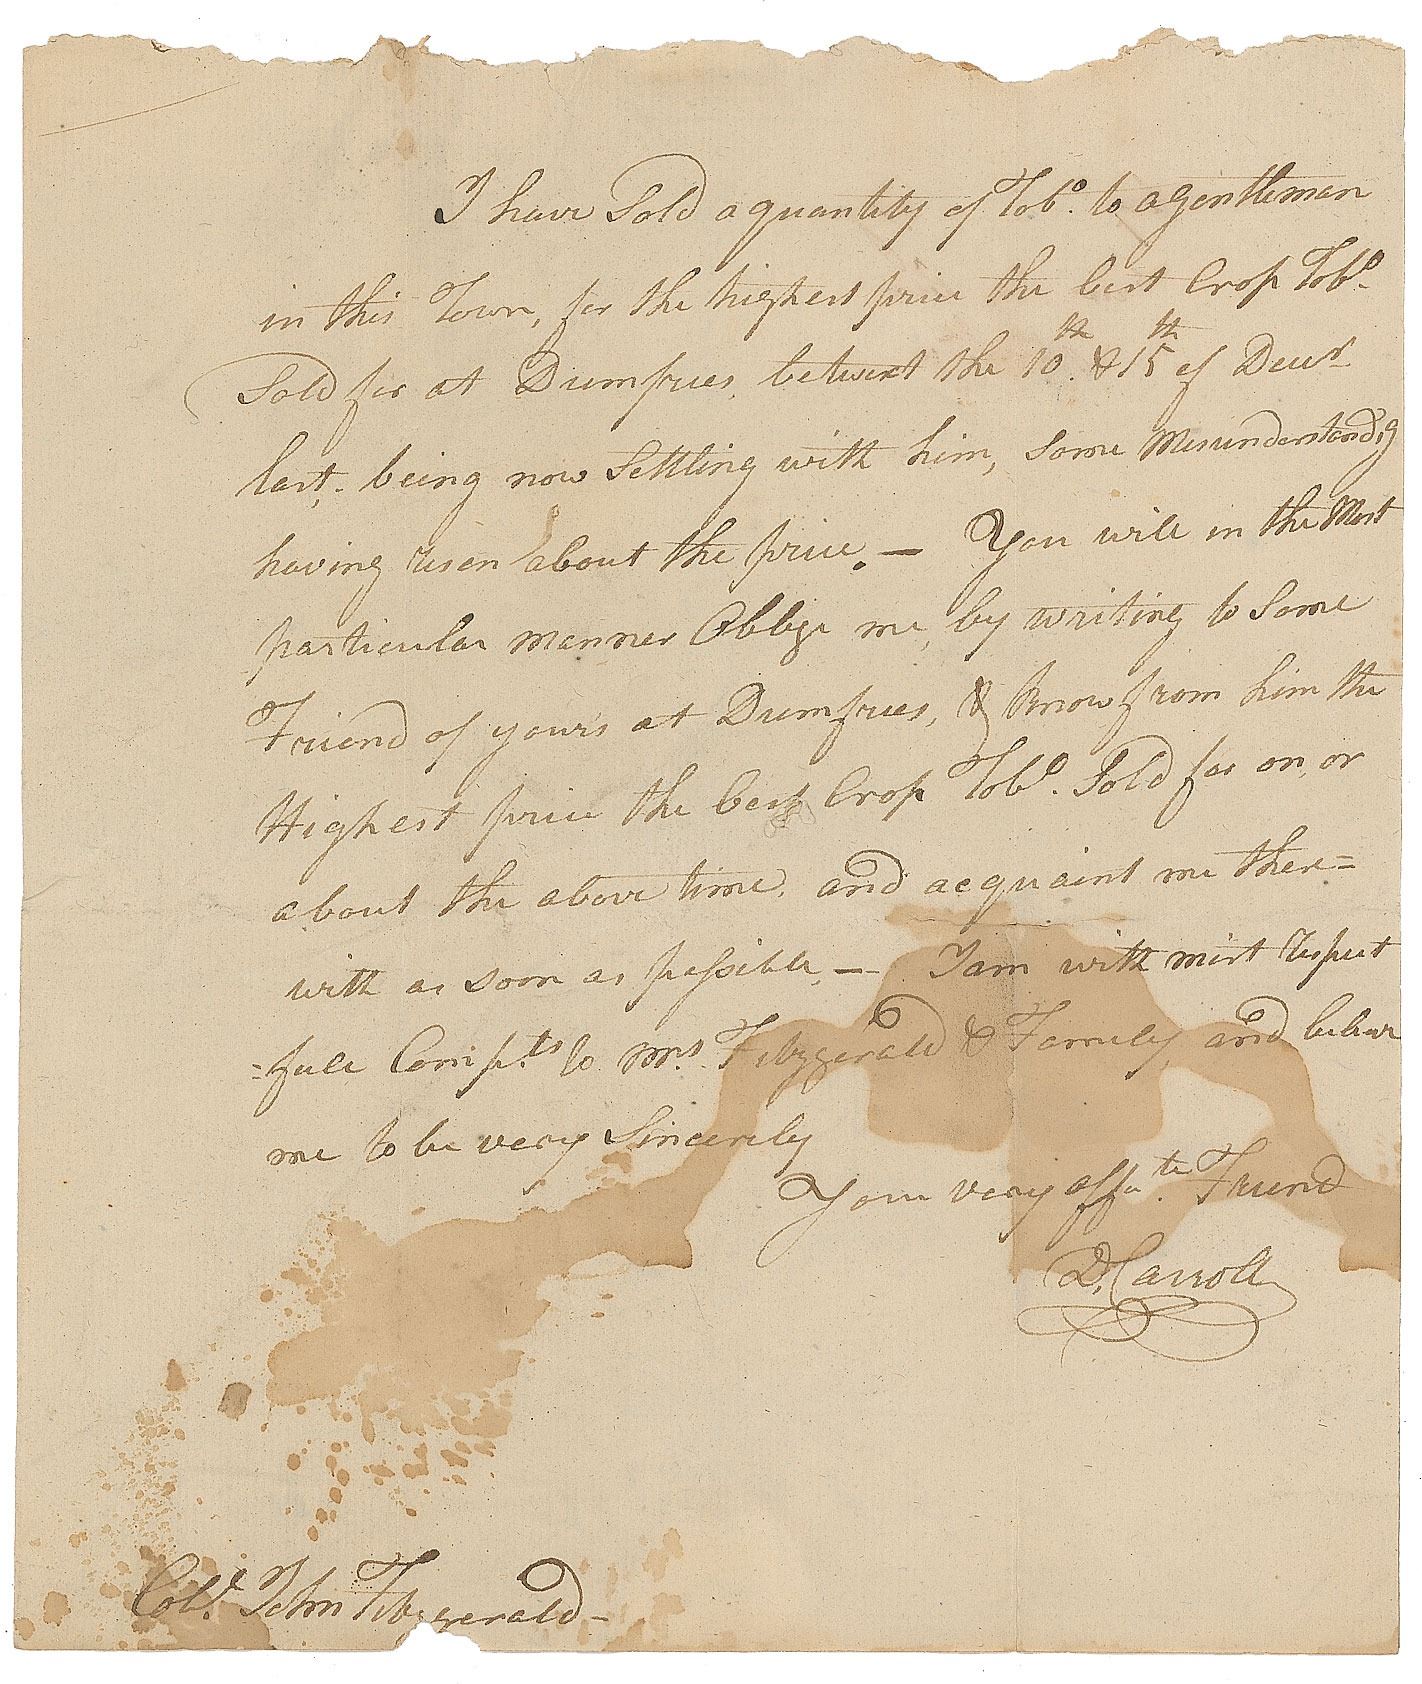 I have Sold a quantity of Tobo. to a gentleman
in this Town, for the highest price the best Crop Tobo.
Sold for at Dumfries, betwext the 10th. & 15th of Decr
last. being now Settling with him, some Misunderstand'g
having risen about the price. — You will in the Most
particular manner Oblige me, by writing to Some
Friend of yours at Dumfries, & know from him the
Highest price the best Crop Tobo. Sold for on, or
about the above time, and acquaint me there=
with as soon as possible, — I am with most respect
=full Compts. to Mrs. Fitzgerald & Family, and believe
me to be very Sincerely
Your very affate. Friend
D. Carroll
Colo. John Fitzgerald —